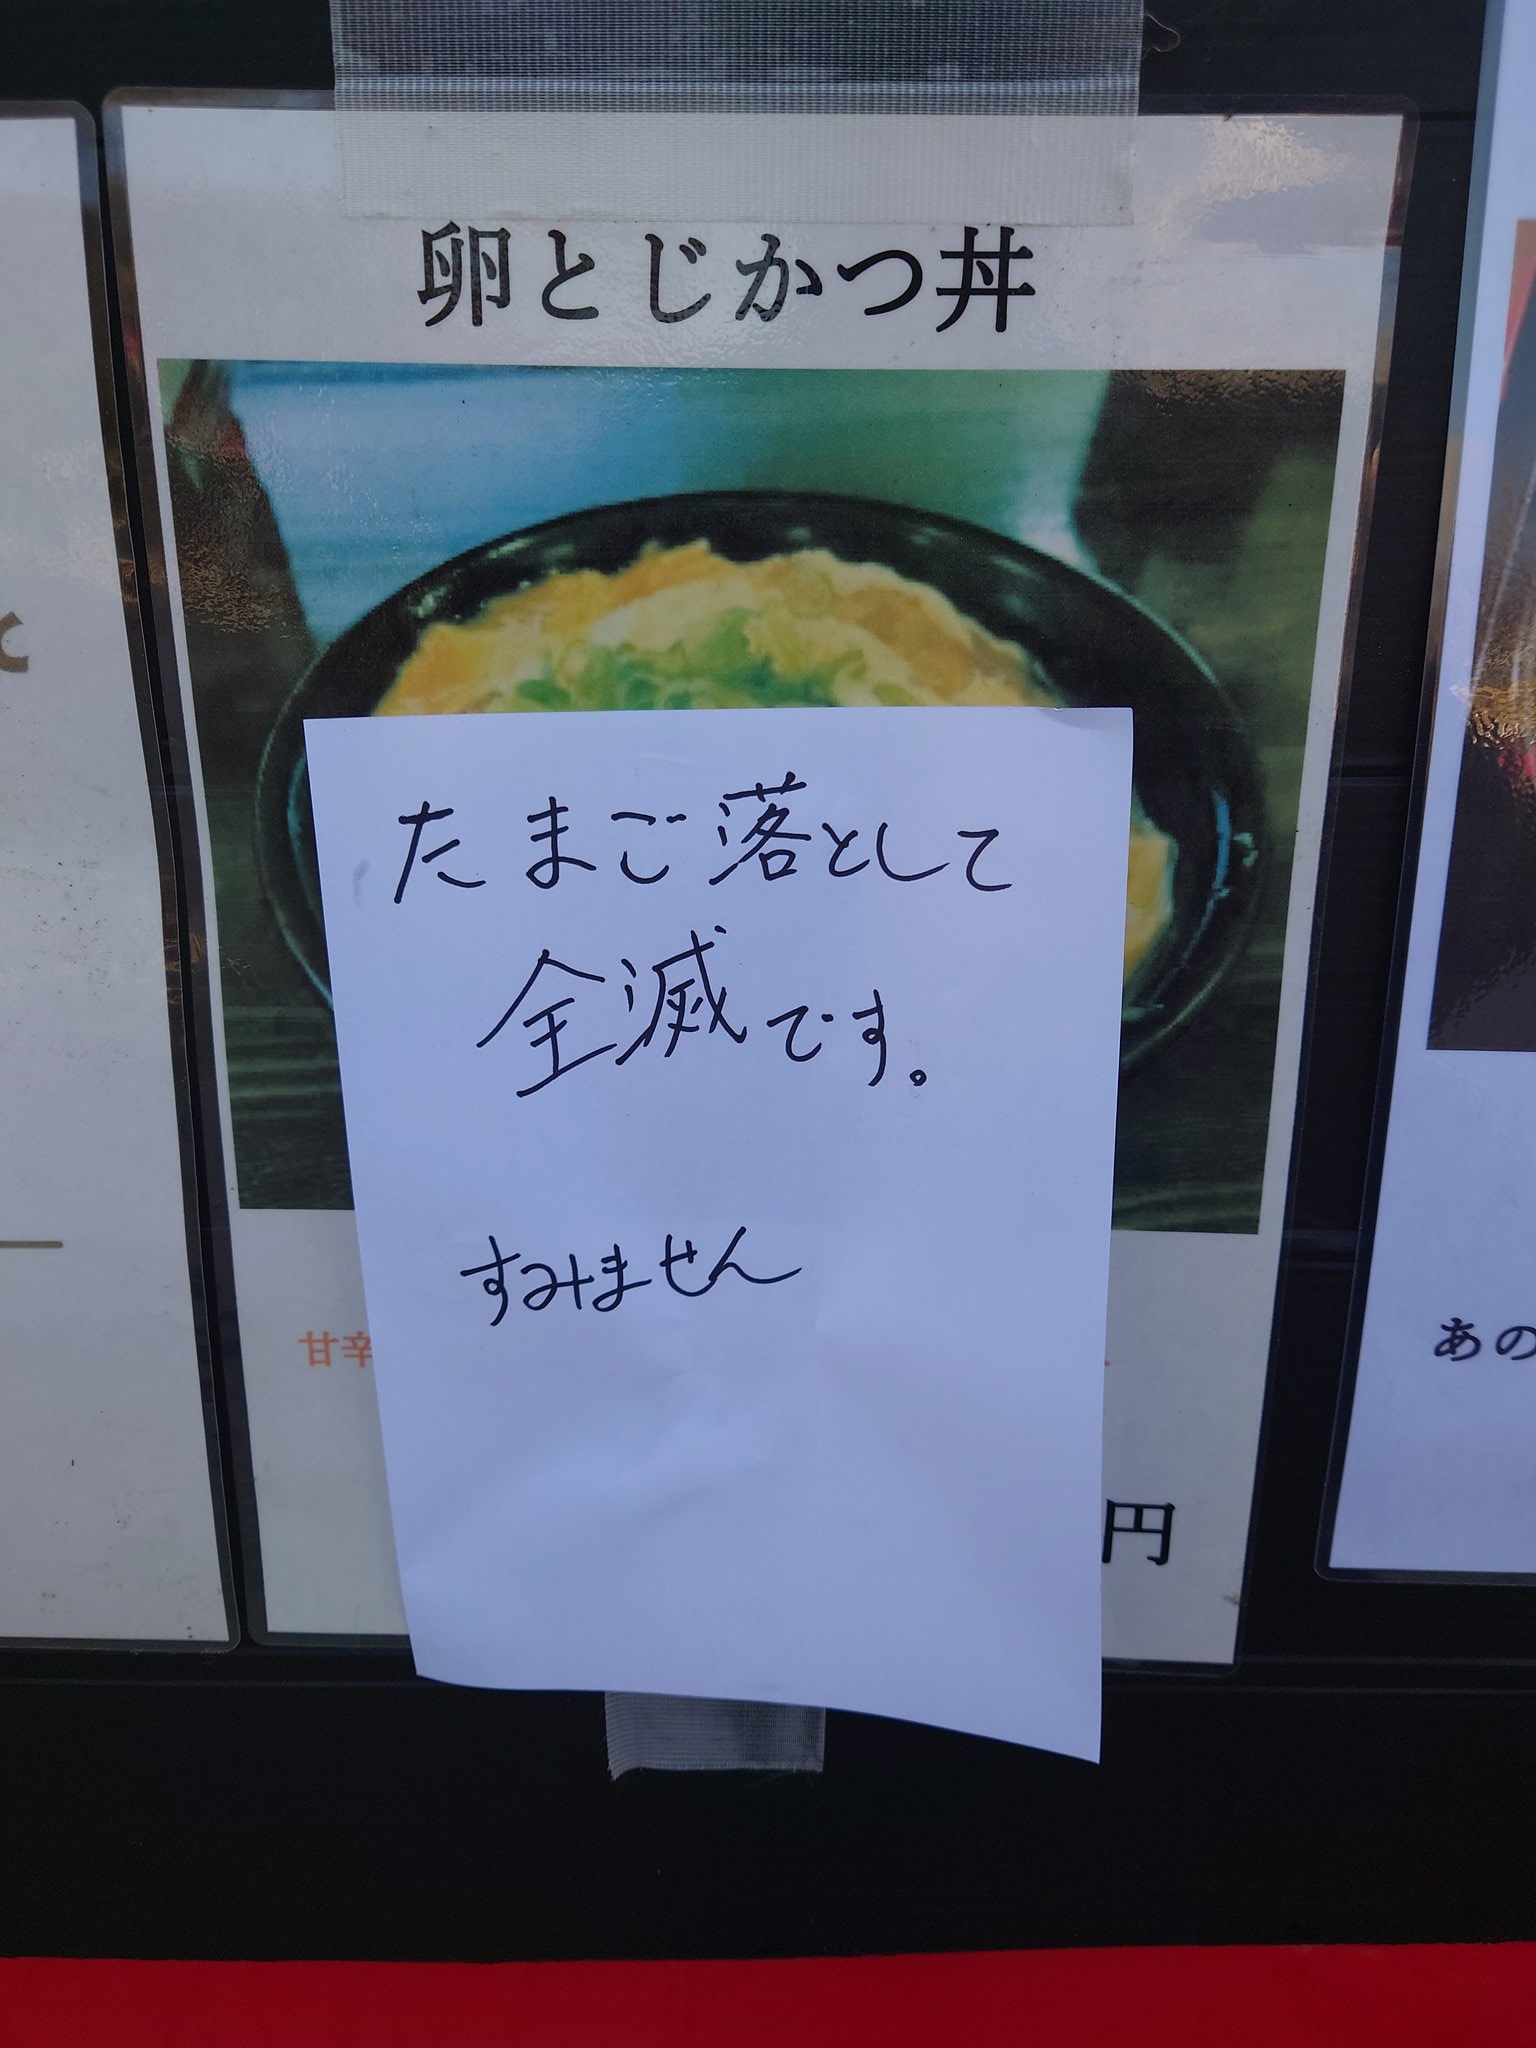 卵とじかつ丼
たまご落として
全滅です。
すみません
甘辛
円
あの
と